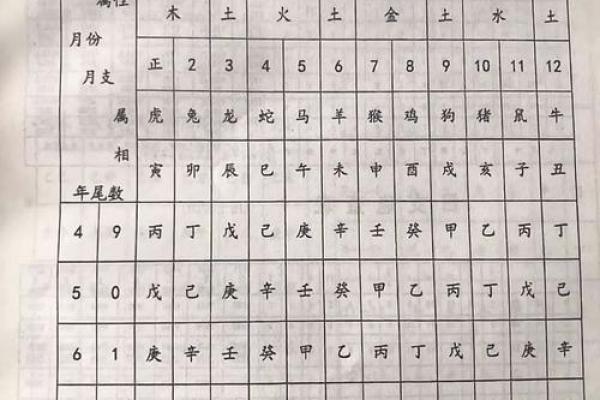 属性 木 土 火 土 金 土 水 土
月份
月支 正 2 3 4 5 6 7 8 9 10 11 12
属 虎 兔 龙 蛇 马 羊 猴 鸡 狗 猪 鼠 牛
相
寅 卯 辰 巳 午 未 申 酉 戌 亥 子 丑
年尾数
4 9 丙 丁 戊 己 庚 辛 壬 癸 甲 乙 丙 丁
5 0 戊 己 庚 辛 壬 癸 甲 乙 丙 丁 戊 己
6 1 庚 辛 壬 癸 甲 乙 丙 丁 戊 己 庚 辛